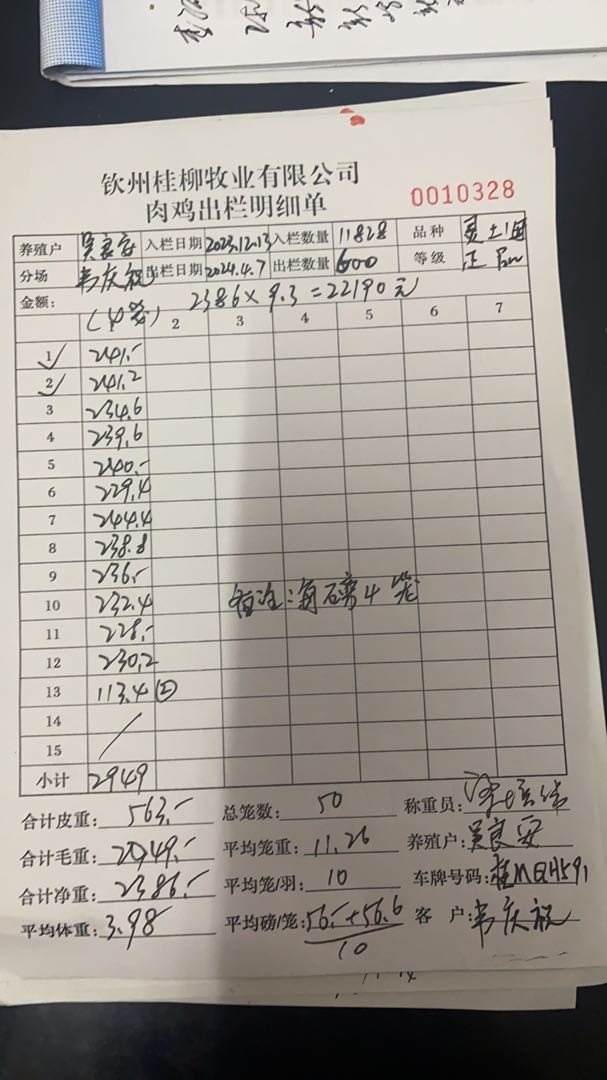 钦州桂柳牧业有限公司
肉鸡出栏明细单
0010328
养殖户 吴良安 入栏日期 2023.12.13 入栏数量 11828 品种
分场 韦庆祝 出栏日期 2024.4.7 出栏数量 600 等级 正
金额: 2386×9.3=22190元
(4笼) 2 3 4 5 6 7
1 241.-
2 241.2
3 234.6
4 239.6
5 240.-
6 229.4
7 244.4
8 238.8
9 236.-
10 232.4 备注:每磅4笼
11 228.-
12 230.2
13 113.4 ②
14
15
小计 2949
合计皮重: 563.- 总笼数: 50 称重员:
合计毛重: 2949.- 平均笼重: 11.26 养殖户: 吴良安
合计净重: 2386.- 平均笼/羽: 10 车牌号码: 桂MQH591
平均体重: 3.98 平均磅/笼: 56.-+56.6 客 户: 韦庆祝
10